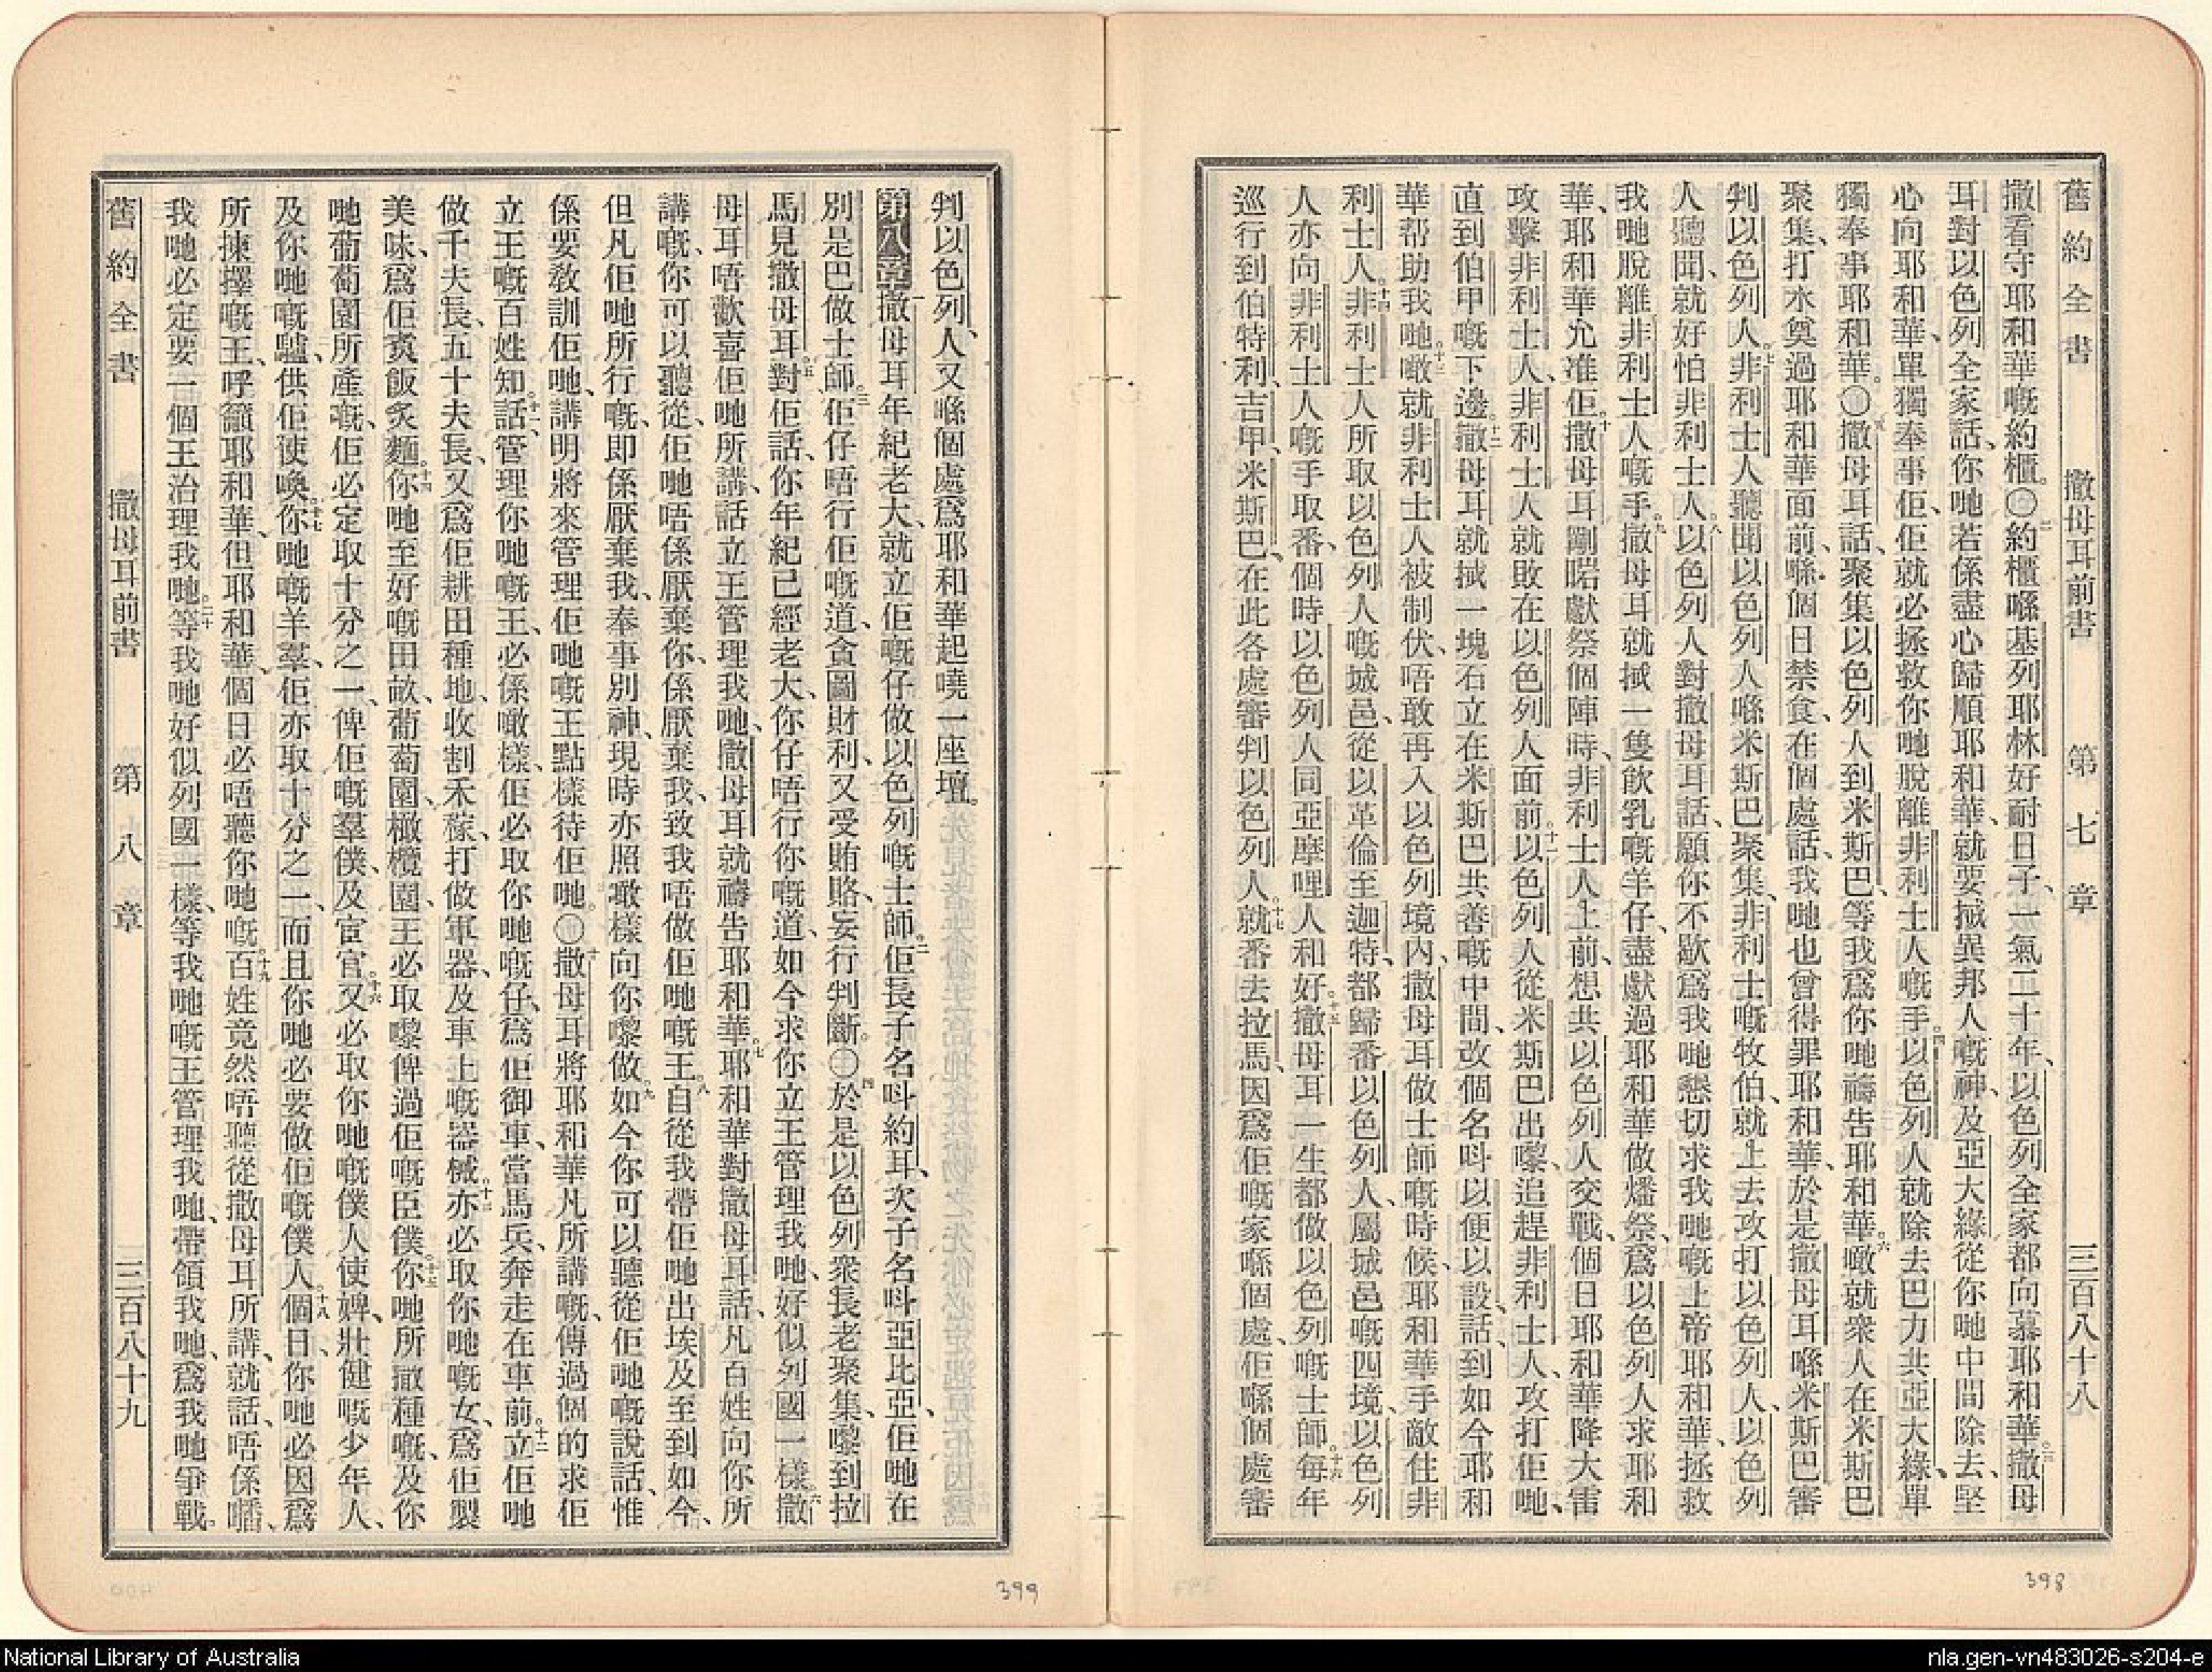 舊約全書 撒母耳前書 第七章 三百八十八
撒看守耶和華嘅約櫃。〇二約櫃喺基列耶林好耐日子、一氣二十年、以色列全家都向慕耶和華。三撒母
耳對以色列全家話、你哋若係盡心歸順耶和華、就要拭異邦人嘅神、及亞大綠從你哋中間除去、堅
心向耶和華、單獨奉事佢、佢就必拯救你哋脫離非利士人嘅手。四以色列人就除去巴力共亞大綠、單
獨奉事耶和華。〇五撒母耳話、聚集以色列人到米斯巴、等我爲你哋禱告耶和華。六噉就衆人在米斯巴
聚集、打水奠過耶和華面前、喺個日禁食、在個處話、我哋也曾得罪耶和華、於是撒母耳喺米斯巴審
判以色列人。七非利士人聽聞以色列人喺米斯巴聚集、非利士嘅牧伯、就上去攻打以色列人、以色列
人聽聞、就好怕非利士人。八以色列人對撒母耳話、願你不歇爲我哋懇切求我哋嘅上帝耶和華、拯救
我哋脫離非利士人嘅手。九撒母耳就拭一隻飲乳嘅羊仔、盡獻過耶和華做燔祭、爲以色列人求耶和
華、耶和華允准佢。十撒母耳剛喏獻祭個陣時、非利士人上前想共以色列人交戰、個日耶和華降大雷
攻擊非利士人、非利士人就敗在以色列人面前。十一以色列人從米斯巴出嚟、追趕非利士人、攻打佢哋、
直到伯甲嘅下邊。十二撒母耳就拭一塊石立在米斯巴共善嘅中間、改個名呌以便以設、話、到如今耶和
華帮助我哋。十三噉就非利士人被制伏、唔敢再入以色列境內、撒母耳做士師嘅時候、耶和華手敵住非
利士人。十四非利士人所取以色列人嘅城邑、從以革倫至迦特、都歸番以色列人、屬城邑嘅四境、以色列
人亦向非利士人嘅手取番、個時以色列人同亞摩哩人和好。十五撒母耳一生都做以色列嘅士師。十六每年
巡行到伯特利、吉甲、米斯巴、在此各處審判以色列人。十七就番去拉馬、因爲佢嘅家喺個處、佢喺個處審
398
判以色列人、又喺個處爲耶和華起嘵一座壇。
第八章一撒母耳年紀老大、就立佢嘅仔做以色列嘅士師。二佢長子名呌約耳、次子名呌亞比亞、佢哋在
別是巴做士師。三佢仔唔行佢嘅道、貪圖財利、又受賄賂、妄行判斷。〇四於是以色列衆長老聚集、嚟到拉
馬見撒母耳。五對佢話、你年紀已經老大、你仔唔行你嘅道、如今求你立王管理我哋、好似列國一樣。六撒
母耳唔歡喜佢哋所講、話立王管理我哋、撒母耳就禱告耶和華。七耶和華對撒母耳話、凡百姓向你所
講嘅、你可以聽從、佢哋唔係厭棄你、係厭棄我、致我唔做佢哋嘅王。八自從我帶佢哋出埃及至到如今、
但凡佢哋所行嘅、即係厭棄我、奉事別神、現時亦照噉樣向你嚟做。九如今你可以聽從佢哋嘅說話、惟
係要教訓佢哋、講明將來管理佢哋嘅王點樣待佢哋。〇十撒母耳將耶和華凡所講嘅、傳過個的求佢
立王嘅百姓知。十一話、管理你哋嘅王、必係噉樣、佢必取你哋嘅仔、爲佢御車、當馬兵、奔走在車前。十二立佢哋
做千夫長、五十夫長、又爲佢耕田種地、收割禾稼、打做軍器、及車上嘅器械。十三亦必取你哋嘅女、爲佢製
美味、爲佢煑飯炙麵。十四你哋至好嘅田畝、葡萄園、橄欖園、王必取嚟俾過佢嘅臣僕。十五你哋所撒種嘅、及你
哋葡萄園所產嘅、佢必定取十分之一、俾佢嘅羣僕、及宦官。十六又必取你哋嘅僕人使婢、壯健嘅少年人、
及你哋嘅驢、供佢使喚。十七你哋嘅羊羣、佢亦取十分之一、而且你哋必要做佢嘅僕人。十八個日、你哋必因爲
所揀擇嘅王、呼籲耶和華、但耶和華、個日必唔聽你哋嘅。十九百姓竟然唔聽從撒母耳所講、就話、唔係噃、
我哋必定要一個王治理我哋。二十等我哋好似列國一樣、等我哋嘅王管理我哋、帶領我哋、爲我哋爭戰。
舊約全書 撒母耳前書 第八章 三百八十九
399
National Library of Australia
nla.gen-vn483026-s204-e